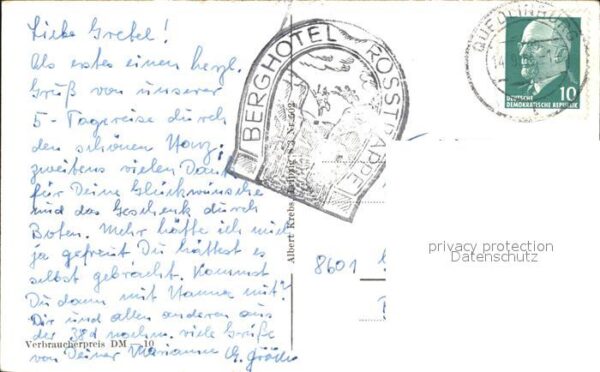 Liebe Gretel!
Als erstes einen herzl.
Gruß von unserer
5-Tagereise durch
den schönen Harz,
zweitens vielen Dank
für Deine Glückwünsche
und das Geschenk durch
Boten. Mehr hätte ich mich
ja gefreut Du hättest es
selbst gebracht. Kommst
Du dann mit Hanna mit?
Dir und allen anderen aus
der 38d nochm. viele Grüße
von Deiner Marianne
Verbraucherpreis DM —.10
Albert Krebs, Leipzig
BERGHOTEL ROSSTRAPPE
QUEDLINBURG
10
DEUTSCHE
DEMOKRATISCHE REPUBLIK
8601
privacy protection
Datenschutz